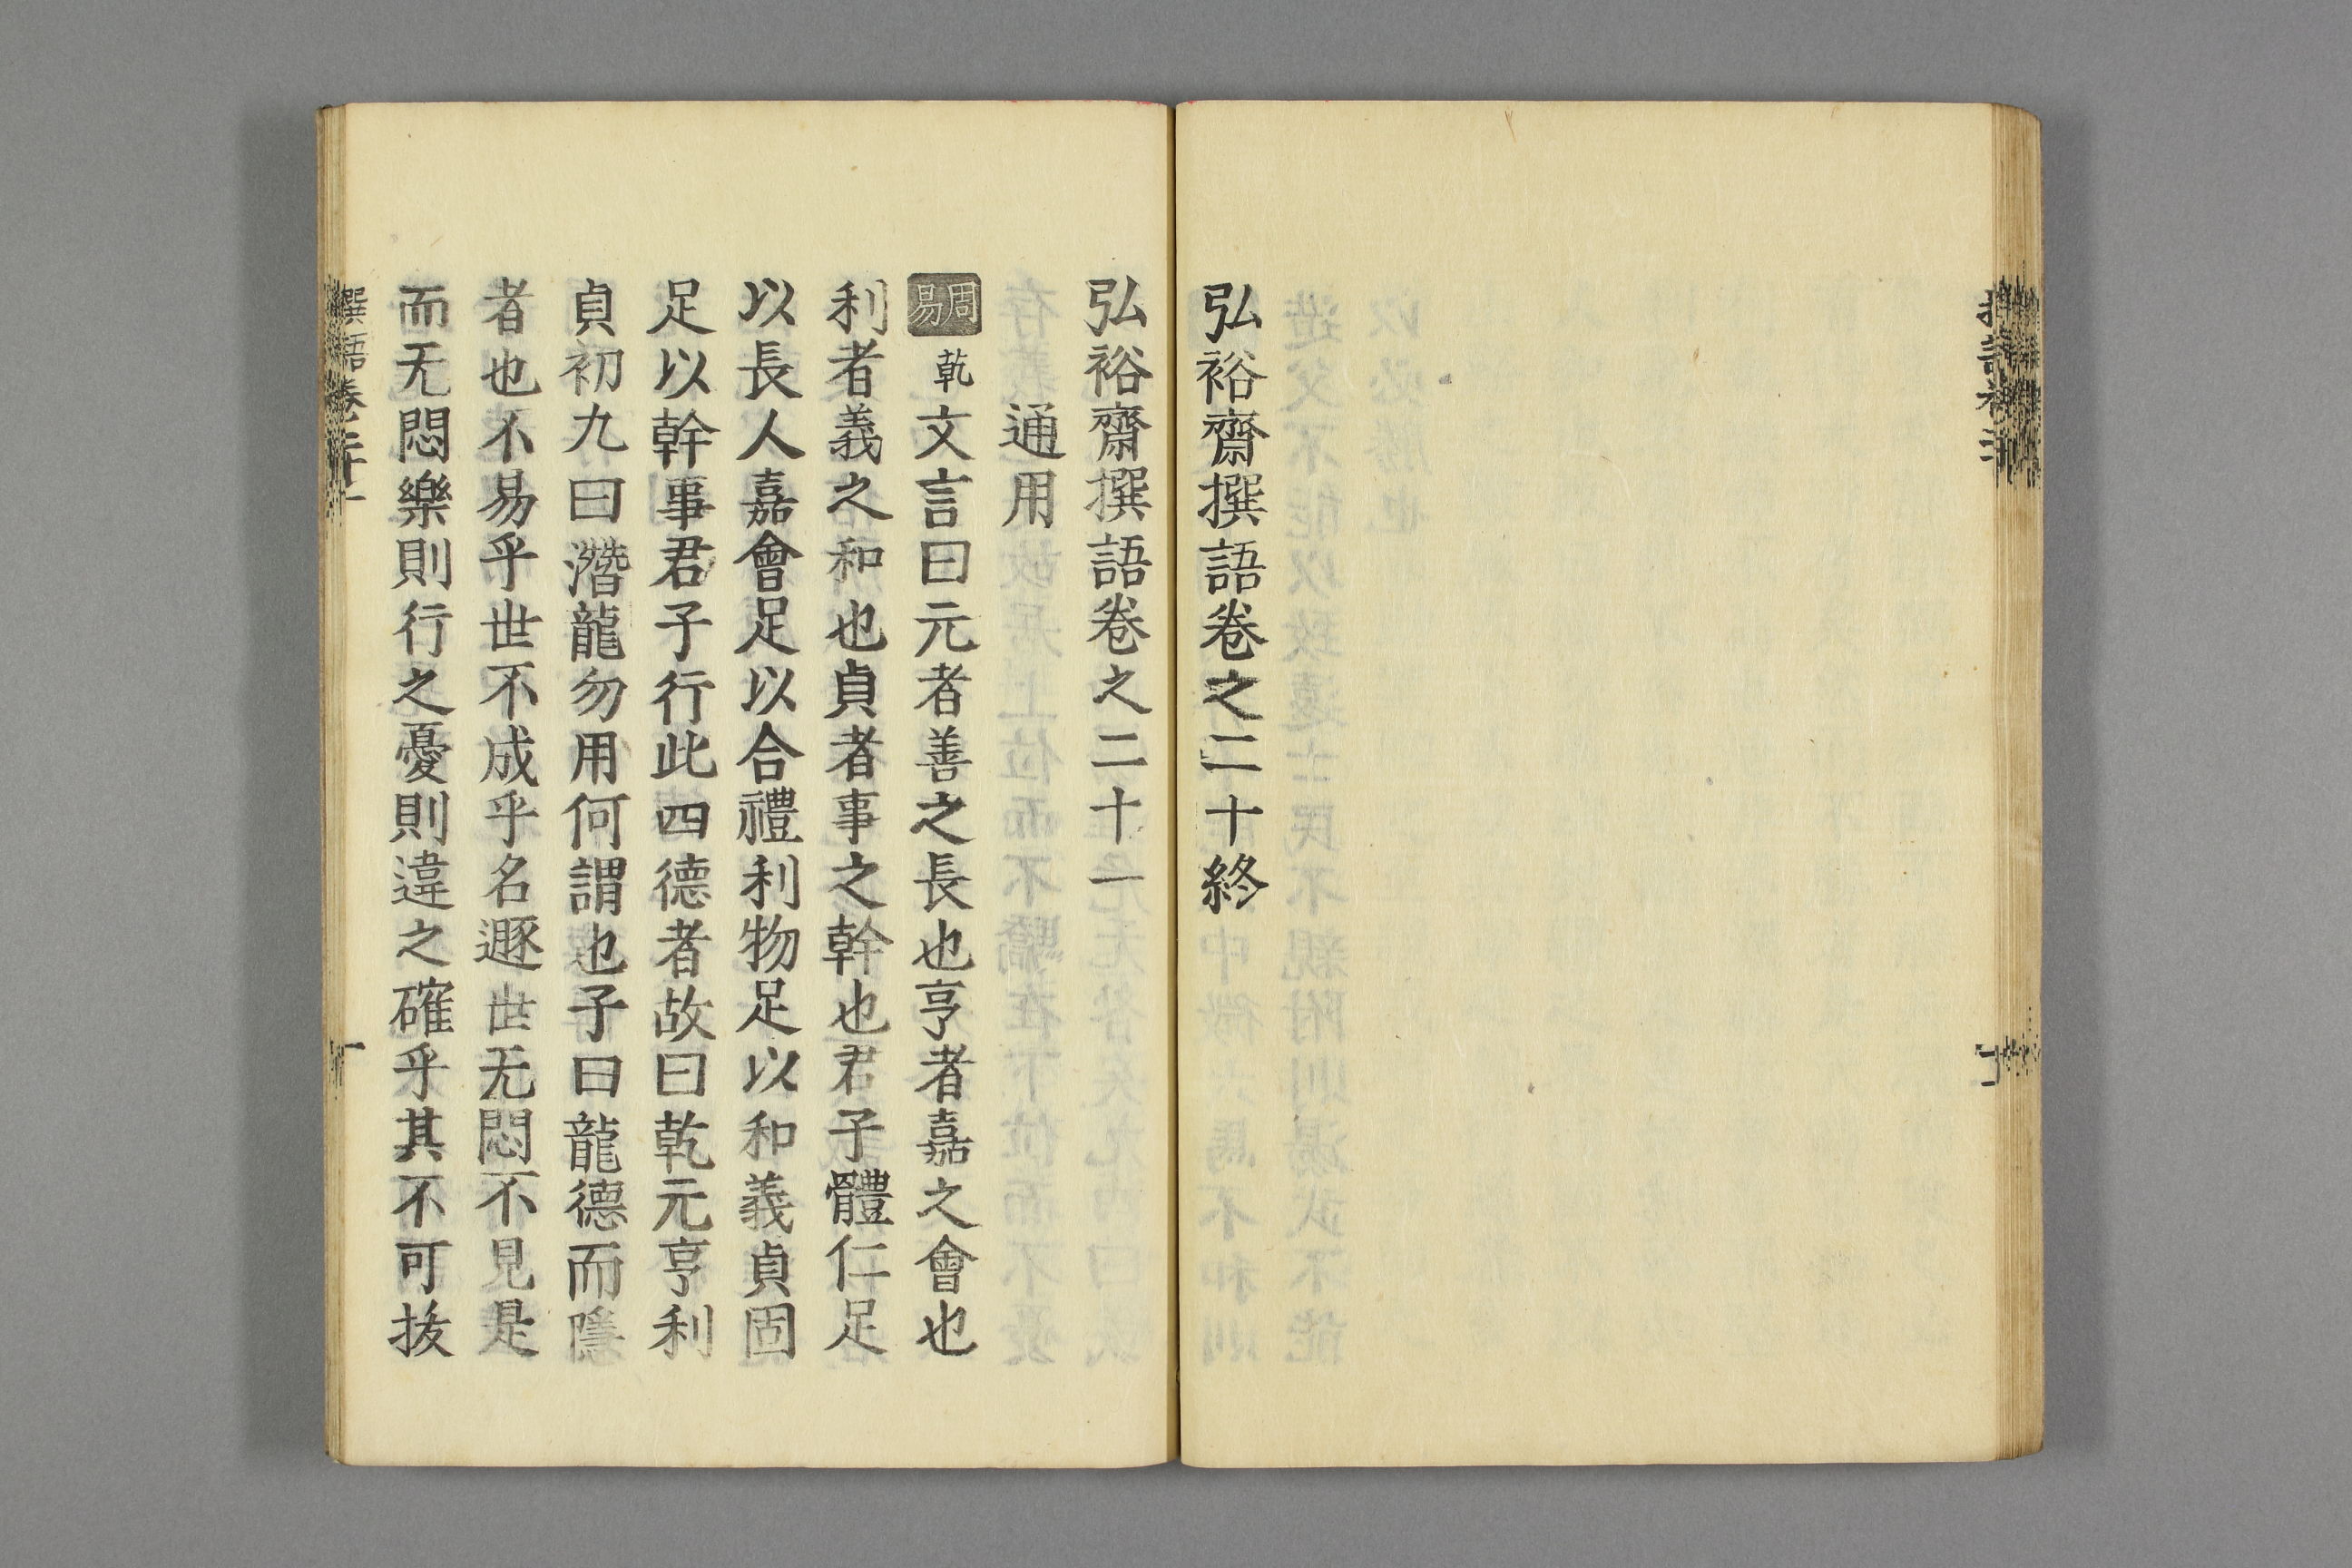 弘裕齋撰語卷之二十終
弘裕齋撰語卷之二十一
通用
周易 乾 文言曰元者善之長也亨者嘉之會也
利者義之和也貞者事之幹也君子體仁足
以長人嘉會足以合禮利物足以和義貞固
足以幹事君子行此四德者故曰乾元亨利
貞初九曰潛龍勿用何謂也子曰龍德而隱
者也不易乎世不成乎名遯世无悶不見是
而无悶樂則行之憂則違之確乎其不可拔
撰語卷二十一
一